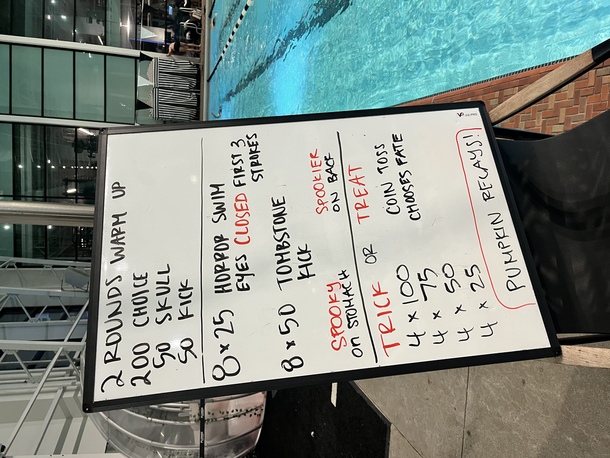 2 ROUNDS WARM UP
200 CHOICE
50 SKULL
50 KICK
8 x 25 HORROR SWIM
EYES CLOSED FIRST 3
STROKES
8 x 50 TOMBSTONE
KICK
SPOOKY
ON STOMACH
SPOOKIER
ON BACK
TRICK OR TREAT
4 x 100
4 x 75
4 x 50
4 x 25
COIN TOSS
CHOOSES FATE
PUMPKIN RELAYS!